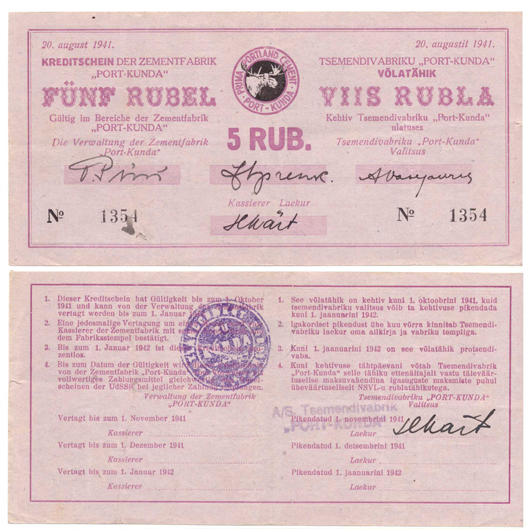 20. august 1941.
KREDITSCHEIN DER ZEMENTFABRIK
„PORT-KUNDA"
FÜNF RUBEL
Gültig im Bereiche der Zementfabrik
„PORT-KUNDA"
Die Verwaltung der Zementfabrik
„Port-Kunda"
№ 1354
PRIMA PORTLAND CEMENT
PORT-KUNDA
5 RUB.
Kassierer Laekur
20. augustil 1941.
TSEMENDIVABRIKU „PORT-KUNDA"
VÕLATÄHIK
VIIS RUBLA
Kehtiv Tsemendivabriku „Port-Kunda"
ulatuses
Tsemendivabriku „Port-Kunda"
Valitsus
№ 1354
1. Dieser Kreditschein hat Gültigkeit bis zum 1. Oktober
1941 und kann von der Verwaltung der Zementfabrik
vertagt werden bis zum 1. Januar
2. Eine jedesmalige Vertagung um ein
Kassierer der Zementfabrik mit
dem Fabriksstempel bestätigt.
3. Bis zum 1. Januar 1942 ist die
zentlos.
4. Bis zum Datum der Gültigkeit
von der Zementfabrik „Port-Kunda"
vollwertiges Zahlungsmittel gleich
scheinen der UdSSR bei jeglicher Zahlung
Verwaltung der Zementfabrik
"PORT-KUNDA"
Vertagt bis zum 1. November 1941
Kassierer
Vertagt bis zum 1. Dezember 1941
Kassierer
Vertagt bis zum 1. Januar 1942
Kassierer
1. See võlatähik on kehtiv kuni 1. oktoobrini 1941, kuid
tsemendivabriku valitsus võib ta kehtivuse pikendada
kuni 1. jaanuarini 1942.
2. Igakordset pikendust ühe kuu võrra kinnitab Tsemendi-
vabriku laekur oma allkirja ja vabriku templiga.
3. Kuni 1. jaanuarini 1942 on see võlatähik protsendi-
vaba.
4. Kuni kehtivuse tähtpäevani võtab Tsemendivabrik
„Port-Kunda" selle tähiku ettenäitajalt vastu täieväär-
tuselise maksuvahendina igasuguste maksmiste puhul
üheväärtuseliselt NSVL-u rublatähikutega.
Tsemendivabriku "PORT-KUNDA"
Valitsus
A/S. Tsemendivabrik
"PORT-KUNDA"
Pikendatud 1. novembrini 1941
Laekur
Pikendatud 1. detsembrini 1941
Laekur
Pikendatud 1. jaanuarini 1942
Laekur